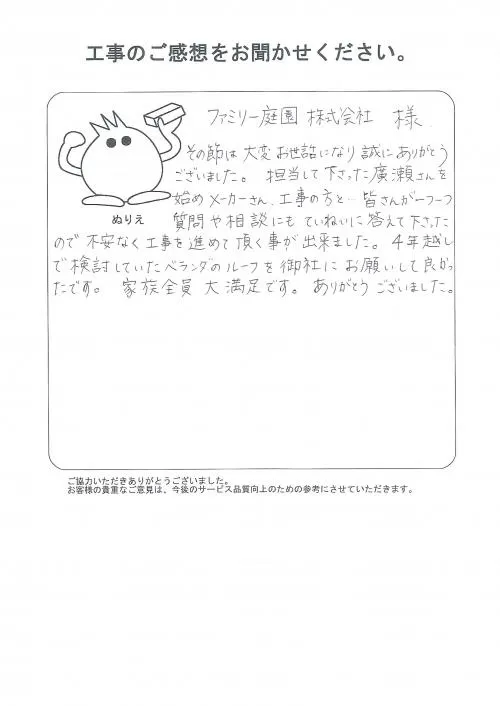 工事のご感想をお聞かせください。
ファミリー庭園 株式会社 様
その節は大変お世話になり誠にありがとう
ございました。 担当して下さった廣瀬さんを
始めメーカーさん、工事の方と… 皆さんが一つ一つ
ぬりえ
質問や相談にも ていねいに答えて下さった
ので 不安なく工事を進めて頂く事が出来ました。 4年越し
で検討していたベランダのルーフを御社にお願いして良かっ
たです。 家族全員 大満足です。 ありがとうございました。
ご協力いただきありがとうございました。
お客様の貴重なご意見は、今後のサービス品質向上のための参考にさせていただきます。